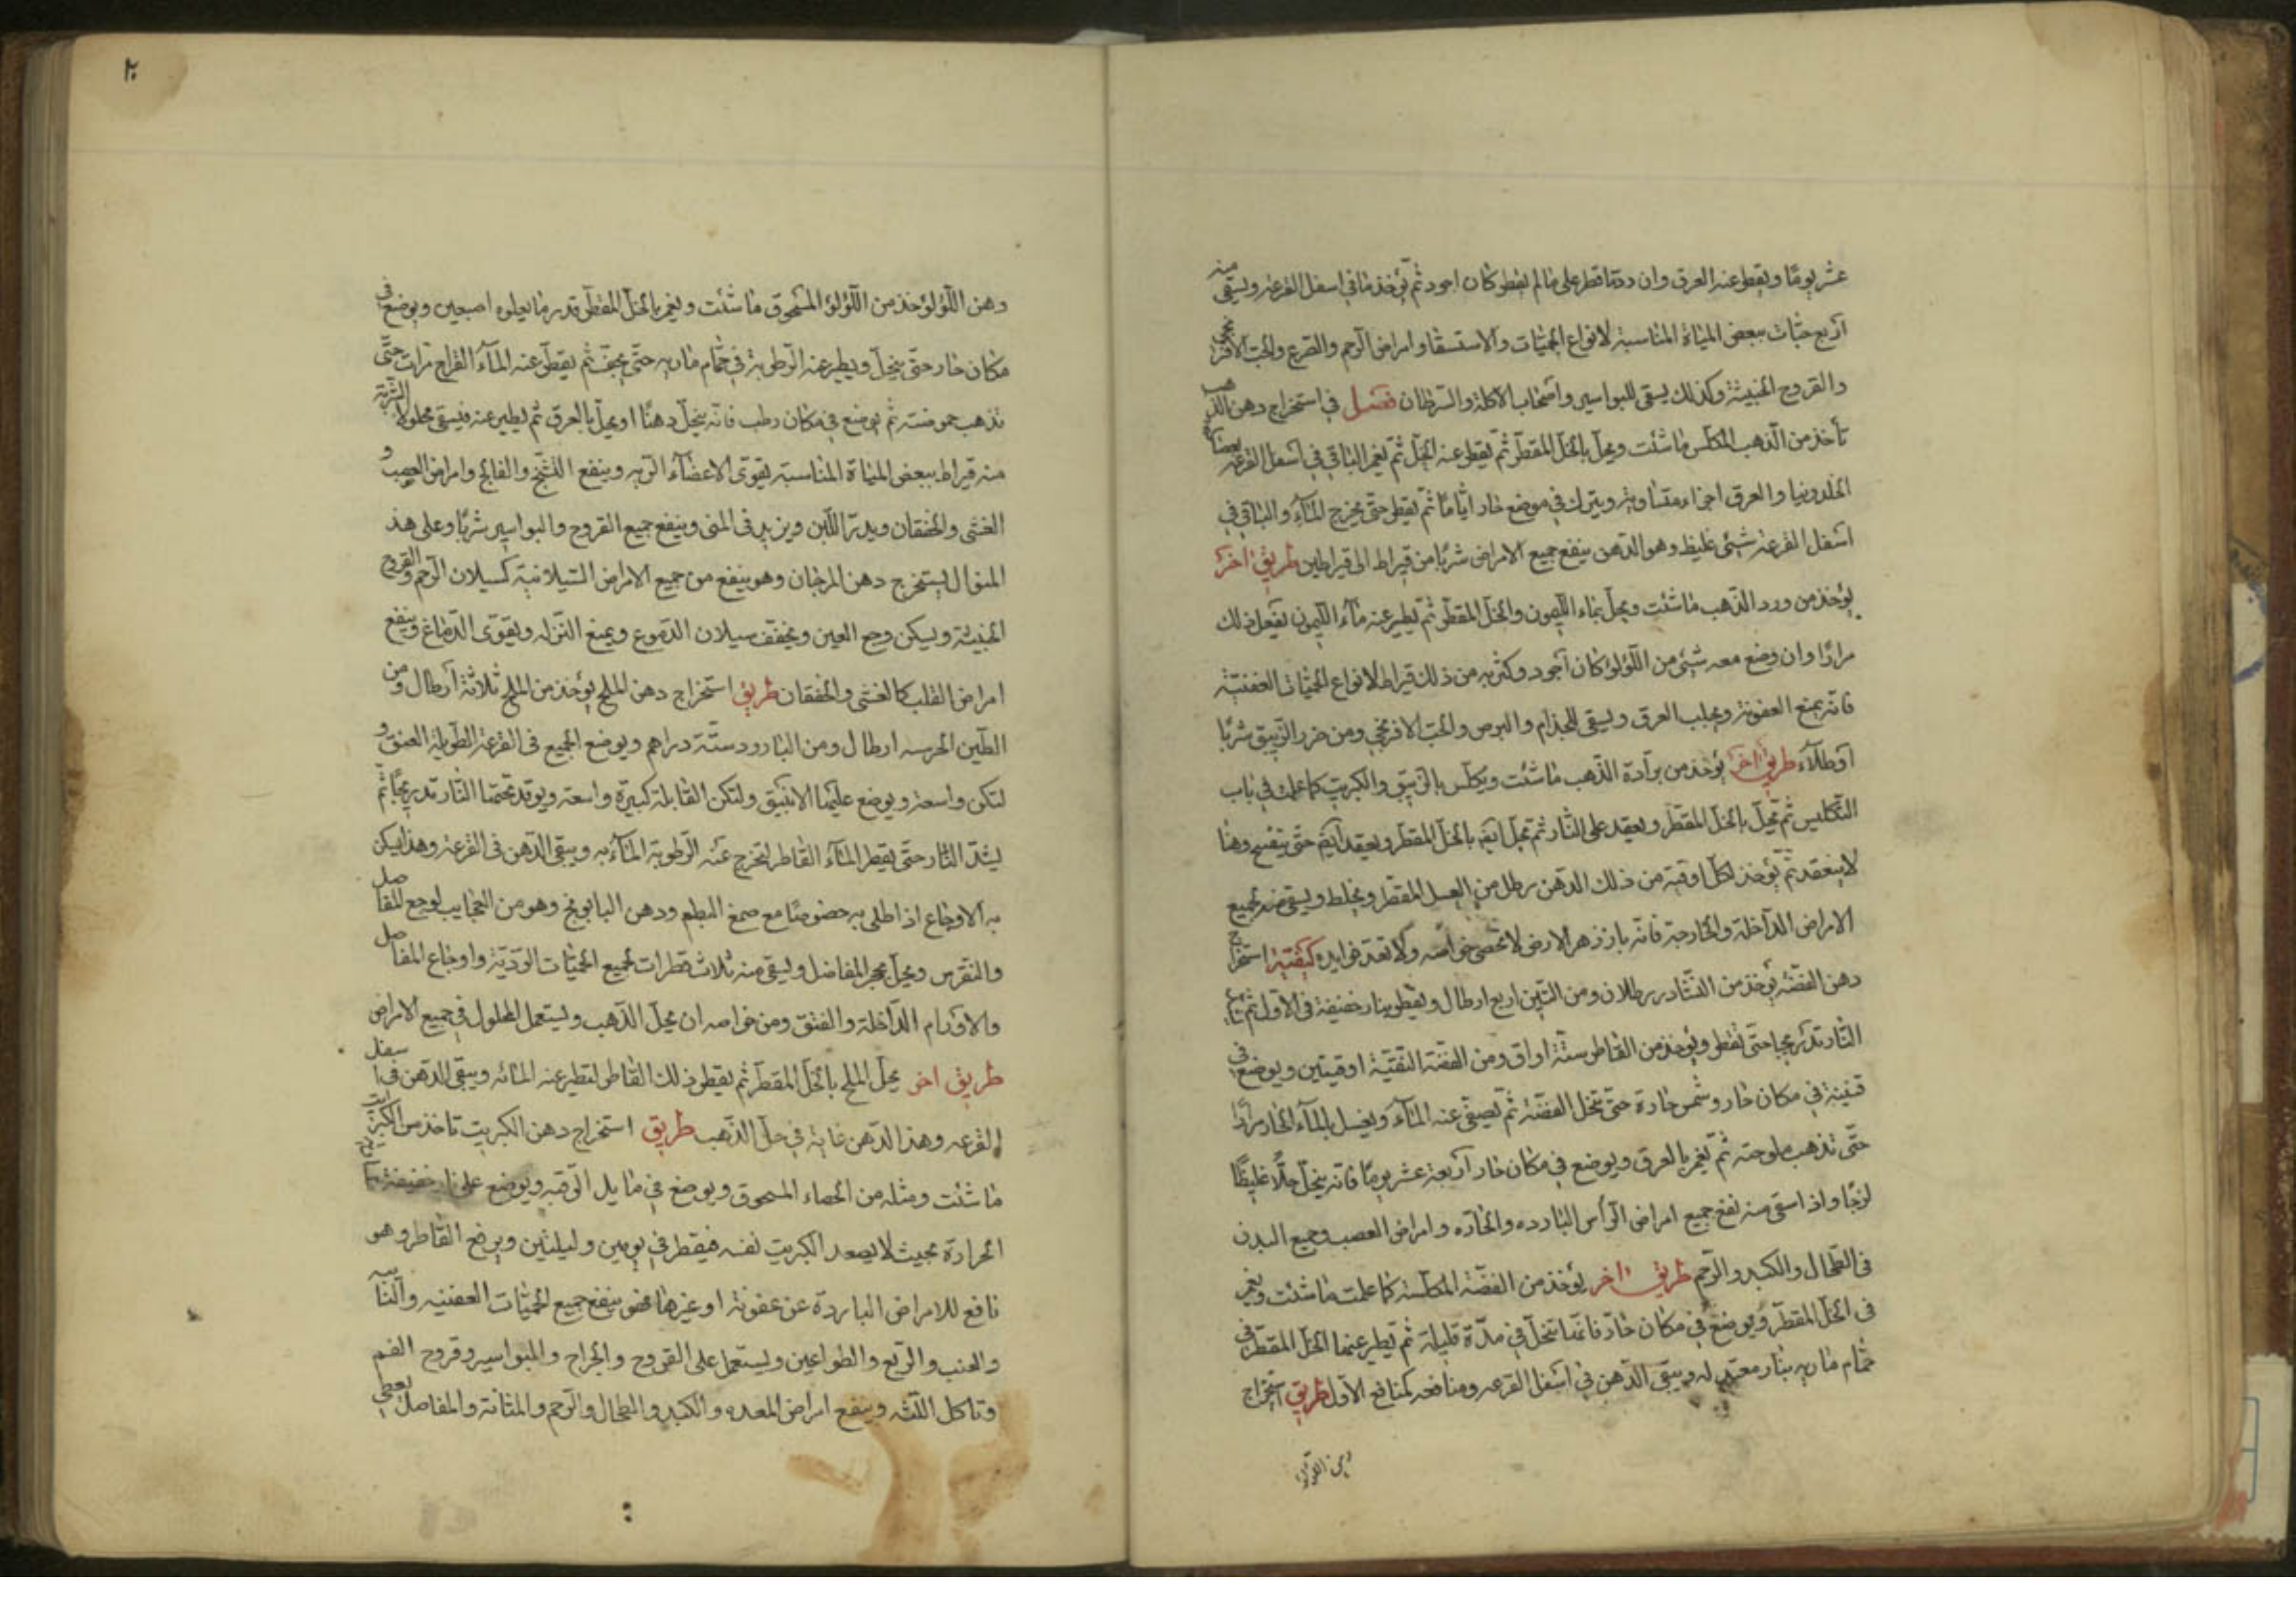 عشر يومًا ويقطر عنه العرق وان ردّ ما قطر على ما لم يقطر كان اجود ثم يؤخذ ما في اسفل القرعة ويسقى منه
اربع حبّات ببعض المياة المناسبة لانواع الحميّات والاستسقا وامراض الرحم والصرع والحب الافرنجي
والقروح الخبيثة وكذلك يسقى للبواسير واصحاب الاكلة والسرطان فصل في استخراج دهن الذهب
تأخذ من الذهب المكلس ما شئت ويحل بالخل المقطّر ثم يقطر عنه الخل ثم يغمر الباقي في اسفل القرعة
والعرق اجزاء متساوية ويترك في موضع حار ايّامًا ثم يقطر حتّى يخرج المآء والباقي في
اسفل القرعة شيئ غليظ وهو الدهن ينفع جميع الامراض شربًا من قيراط الى قيراطين طريق اخر
يؤخذ من ورد الذهب ما شئت ويحل بماء الليمون والخل المقطّر ثم يطير عنه مآء الليمون يفعل ذلك
مرارًا وان وضع معه شيئ من اللؤلؤ كان اجود وكثر به من ذلك قيراط لانواع الحميّات العفنيّة
فانّه يمنع العفونة ويجلب العرق ويسقى للجذام والبرص والحب الافرنجي ومن ضرر الزيبق شربًا
او طلآء طريق اخر يؤخذ من برآدة الذهب ما شئت ويكلّس بالزيبق والكبريت كما علمت في باب
التكليس ثم يحل بالخل المقطّر ويعقد على النّار ثم يحل ايضا بالخل المقطّر ويعقد ايضا حتّى يتفتح دهنا
لا ينعقد ثم يؤخذ لكل اوقية من ذلك الدهن رطل من العسل المقطّر ويخلط ويسقى منه لجميع
الامراض الدآخلة والخارجة فانّه بازهر الارض لا تحصى خواصّه ولا تعدّ فوايده كيفيّة استخراج
دهن الفضّة يؤخذ من النشادر رطلان ومن التين اربع ارطال ويقطر بنار خفيفة في الاول ثم
النّار تدريجيا حتّى تقطر ويؤخذ من القاطر ستّة اواق ومن الفضّة النقيّة اوقيتين ويوضع في
قنينة في مكان حار وشمس حارة حتّى تنحل الفضّة ثم يصفّى عنه المآء ويغسل بالمآء الحار مرارًا
حتّى تذهب ملوحته ثم يغمر بالعرق ويوضع في مكان حار اربعة عشر يومًا فانّه ينحل حلًا غليظًا
لزجًا واذ اسقى منه نفع جميع امراض الرأس البارده والحارّه وامراض العصب وجميع البدن
في الطحال والكبد والرّحم طريق اخر يؤخذ من الفضّة المكلّسة كما علمت ما شئت ويغمر
في الخل المقطّر ويوضع في مكان حارّ فانّها تنحل في مدّة قليلة ثم يطير عنها الخل المقطّر في
حمّام ماريه بنار معتدله ويبقى الدّهن في اسفل القرعه ومنافعه كمنافع الاول طريق استخراج
دهن اللؤلؤ
٢٠
دهن اللؤلؤ خذ من اللؤلؤ المسحوق ما شئت ويغمر بالخل المقطّر قدر ما يعلوه اصبعين ويوضع في
مكان حار حتّى ينحل ويطير عنه الرّطوبة في حمّام ماريه حتّى يجفّ ثم يقطّر عنه المآء القراح مرات حتّى
تذهب حموضته ثم يوضع في مكان رطب فانّه ينحلّ دهنًا او يحل بالعرق ثم يطير عنه فيسقى محلولا الشربة
منه قيراط ببعض المياة المناسبة يقوى الاعضآء الرّيه وينفع التشنّج والفالج وامراض العصب و
الغشى والخفقان ويدرّ اللّبن ويزيد في المنى وينفع جميع القروح والبواسير شربًا وعلى هذ
المنوال يستخرج دهن المرجان وهو ينفع من جميع الامراض السّيلانية كسيلان الرّحم والقروح
الخبيثة ويسكن وجع العين ويخفف سيلان الدّموع ويمنع النّزله ويقوّى الدّماغ وينفع
امراض القلب كالغشى والخفقان طريق استخراج دهن الملح يؤخذ من الملح ثلاثة ارطال ومن
الطّين ارطال ومن البارود ستّة دراهم ويوضع الجميع في القرعة الطّويلة العنق و
لتكن واسعة ويوضع عليها الانبيق ولتكن القابلة كبيرة واسعة ويوقد تحتها النّار تدريجيًا ثم
يشدّ النّار حتّى يقطر المآء القاطر لتخرج عنه الرّطوبة المآئيه ويبقى الدّهن في القرعة وهذا يسكن
به الاوجاع اذا طلى به خصوصًا مع صمغ البطم ودهن البابونج وهو من العجايب لوجع المفاصل
والنقرس ويحل حجر المفاصل ويسقى منه ثلاث قطرات لجميع الحميّات الرديّة واوجاع المفاصل
والاورام الدّاخلة والفتق ومن خواصه ان يحلّ الذّهب ويستعمل المحلول في جميع الامراض
طريق اخر يحل الملح بالخل المقطّر ثم يقطر ذلك القاطر لتطير عنه المائه ويبقى الدّهن في اسفل
القرعه وهذا الدّهن غاية في حلّ الذّهب طريق استخراج دهن الكبريت تاخذ من الكبريت
ما شئت ومثله من الحصاء المسحوق ويوضع في مايل الرّقبه ويوضع على نار خفيفة
الحرارة بحيث لا يصعد الكبريت نفسه فيقطر في يومين وليلتين ويرفع القاطر وهو
نافع للامراض الباردة عن عفونة او غيرها فهو ينفع جميع الحميّات العفنيه
والرّبع والطواعين ويستعمل على القروح والجراح والبواسير وقروح الفم
وتاكل اللثه وينفع امراض المعده والكبد والطحال والرّحم والمثانة والمفاصل يعطى